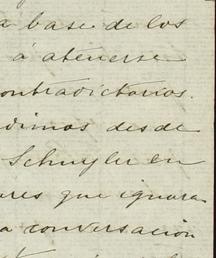 a base de los
á atenerse
contradictorios.
dimos desde
Schuyler en
res que ignora
a conversación